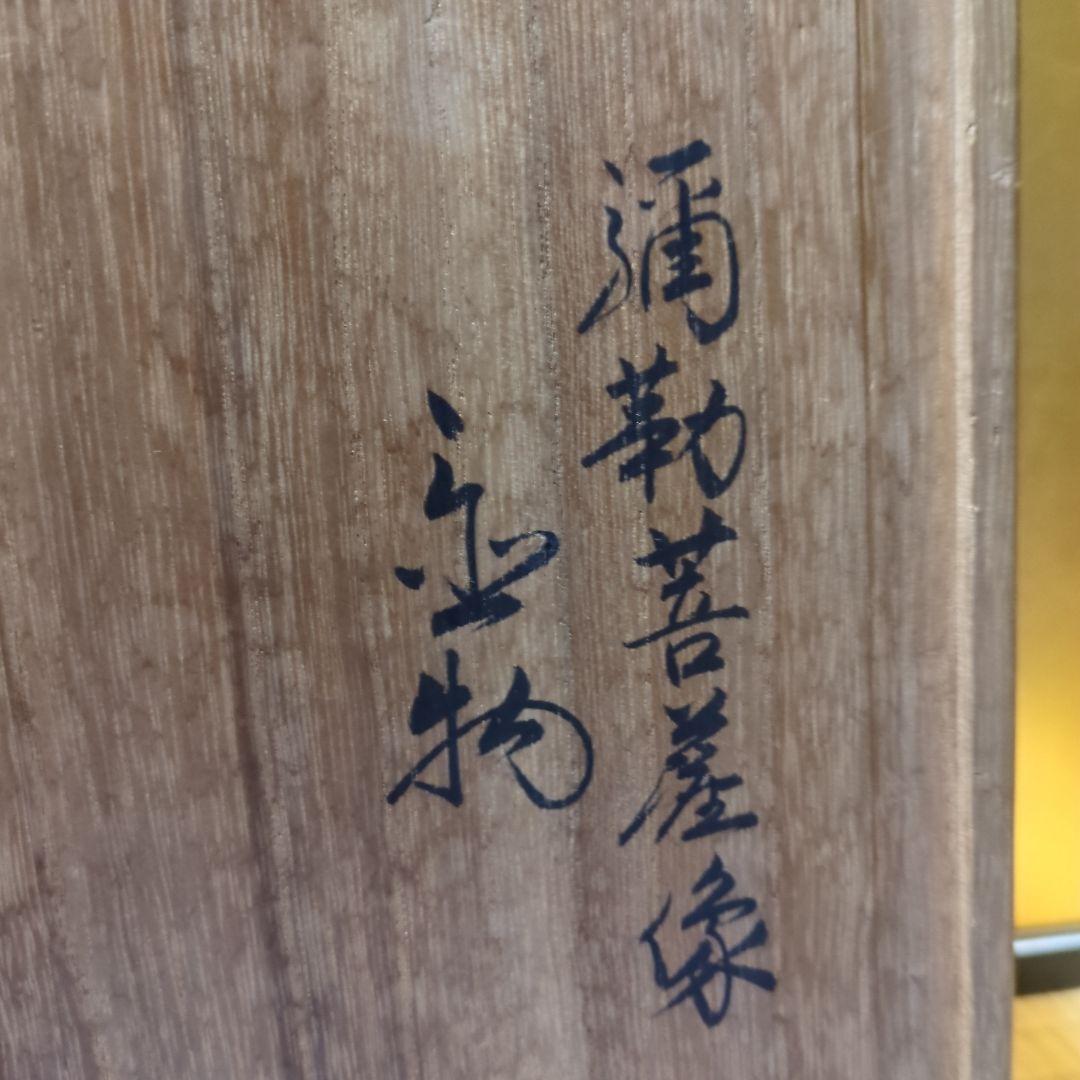 彌勒菩薩像
物